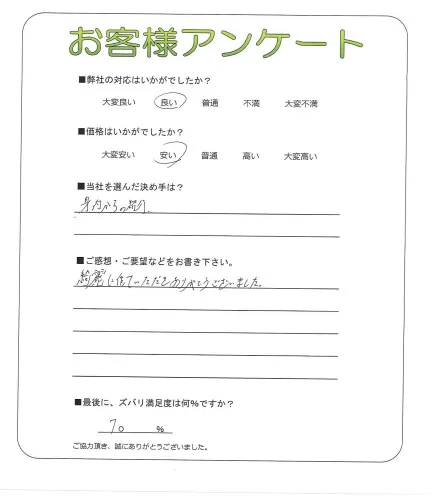 お客様アンケート
■弊社の対応はいかがでしたか？
大変良い 良い 普通 不満 大変不満
■価格はいかがでしたか？
大変安い 安い 普通 高い 大変高い
■当社を選んだ決め手は？
身内からの紹介
■ご感想・ご要望などをお書き下さい。
綺麗に仕ていただきありがとうございました。
■最後に、ズバリ満足度は何％ですか？
70 ％
ご協力頂き、誠にありがとうございました。